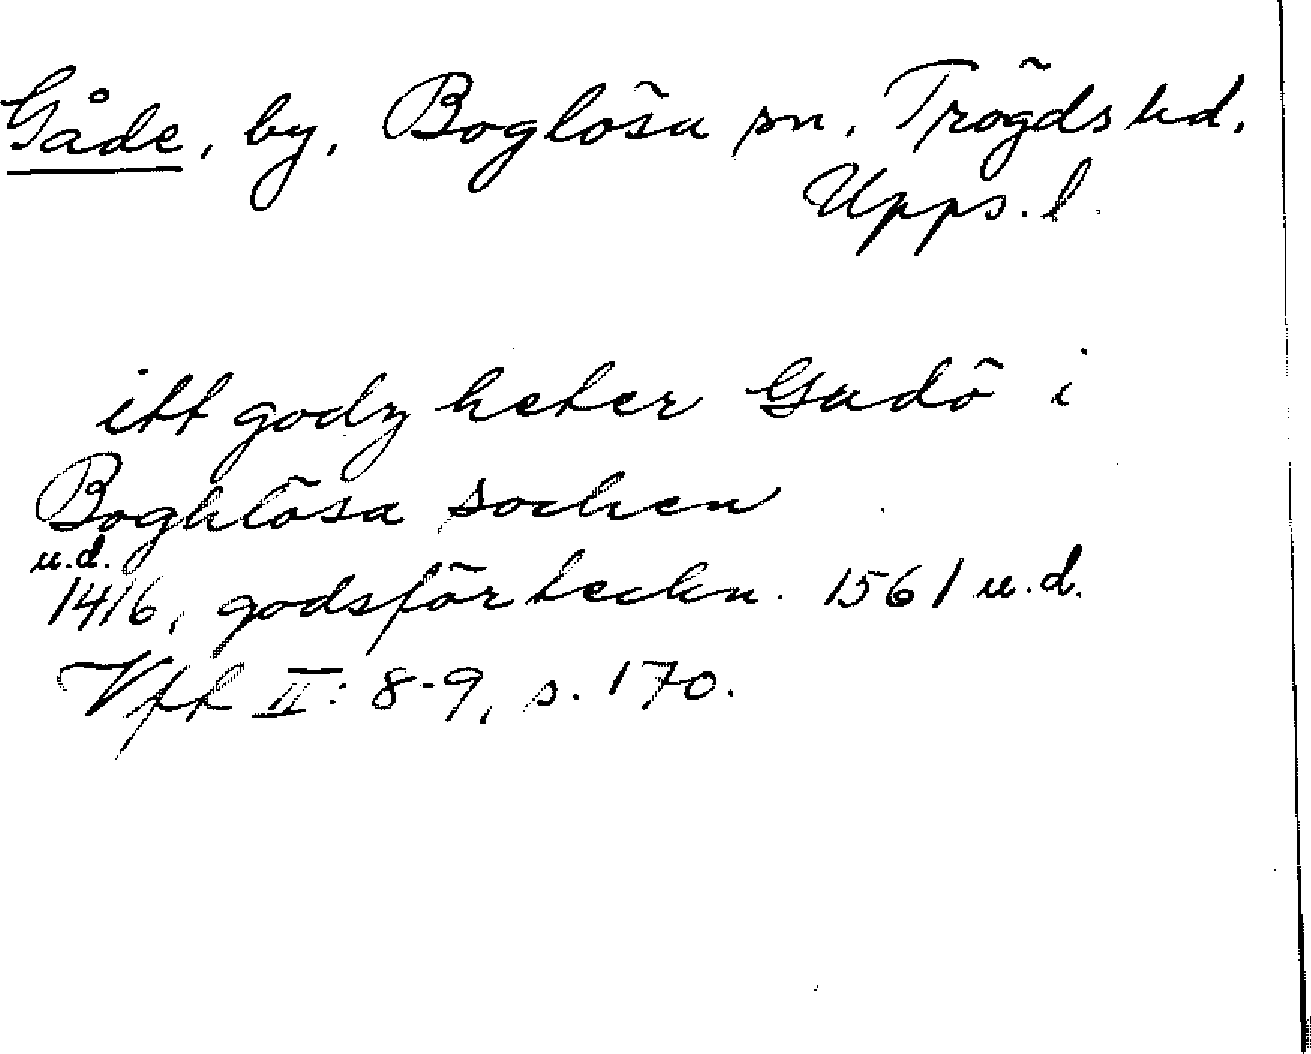 Gåde, by, Boglösa sn, Trögds hd,
Upps. l.
itt godz heter Gudö i
Boghlösa sochen
u.d.
1416, godsförteckn. 1561 u.d.
Vfk II: 8-9, s. 170.